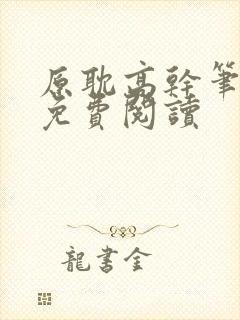 原耽高幹筆
免費閱讀
龍書金